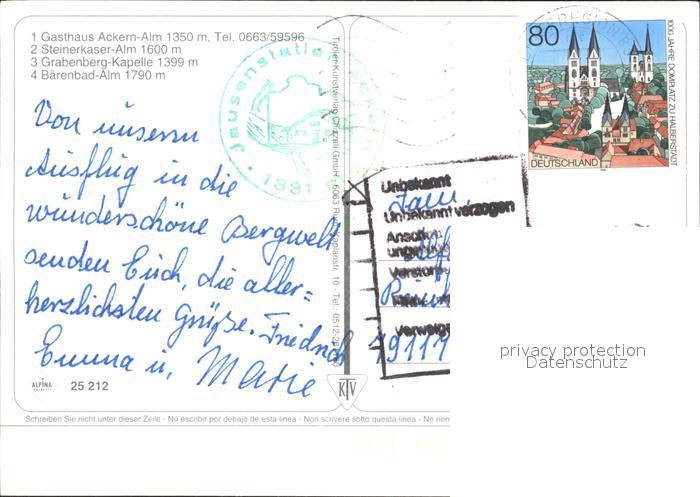 1 Gasthaus Ackern-Alm 1350 m, Tel. 0663/59596
2 Steinerkaser-Alm 1600 m
3 Grabenberg-Kapelle 1399 m
4 Bärenbad-Alm 1790 m
Jausenstation Ackernalm
1331
Von unserm
Ausflug in die
wunderschöne Bergwelt
senden Euch, die aller=
herzlichsten Grüße. Friedrich
Emma u. Marie
ALPINA
25 212
KTV
Tiroler Kunstverlag Chizzali GmbH
6063
Kaplanstr. 10 - Tel. 0512
80
DEUTSCHLAND
1000 JAHRE DOMPLATZ ZU HALBERSTADT
Unbekannt
Fam.
Unbekannt verzogen
79111
privacy protection
Datenschutz
Schreiben Sie nicht unter dieser Zeile - No escribir por debajo de esta linea - Non scrivere sotto questa linea - Ne rien